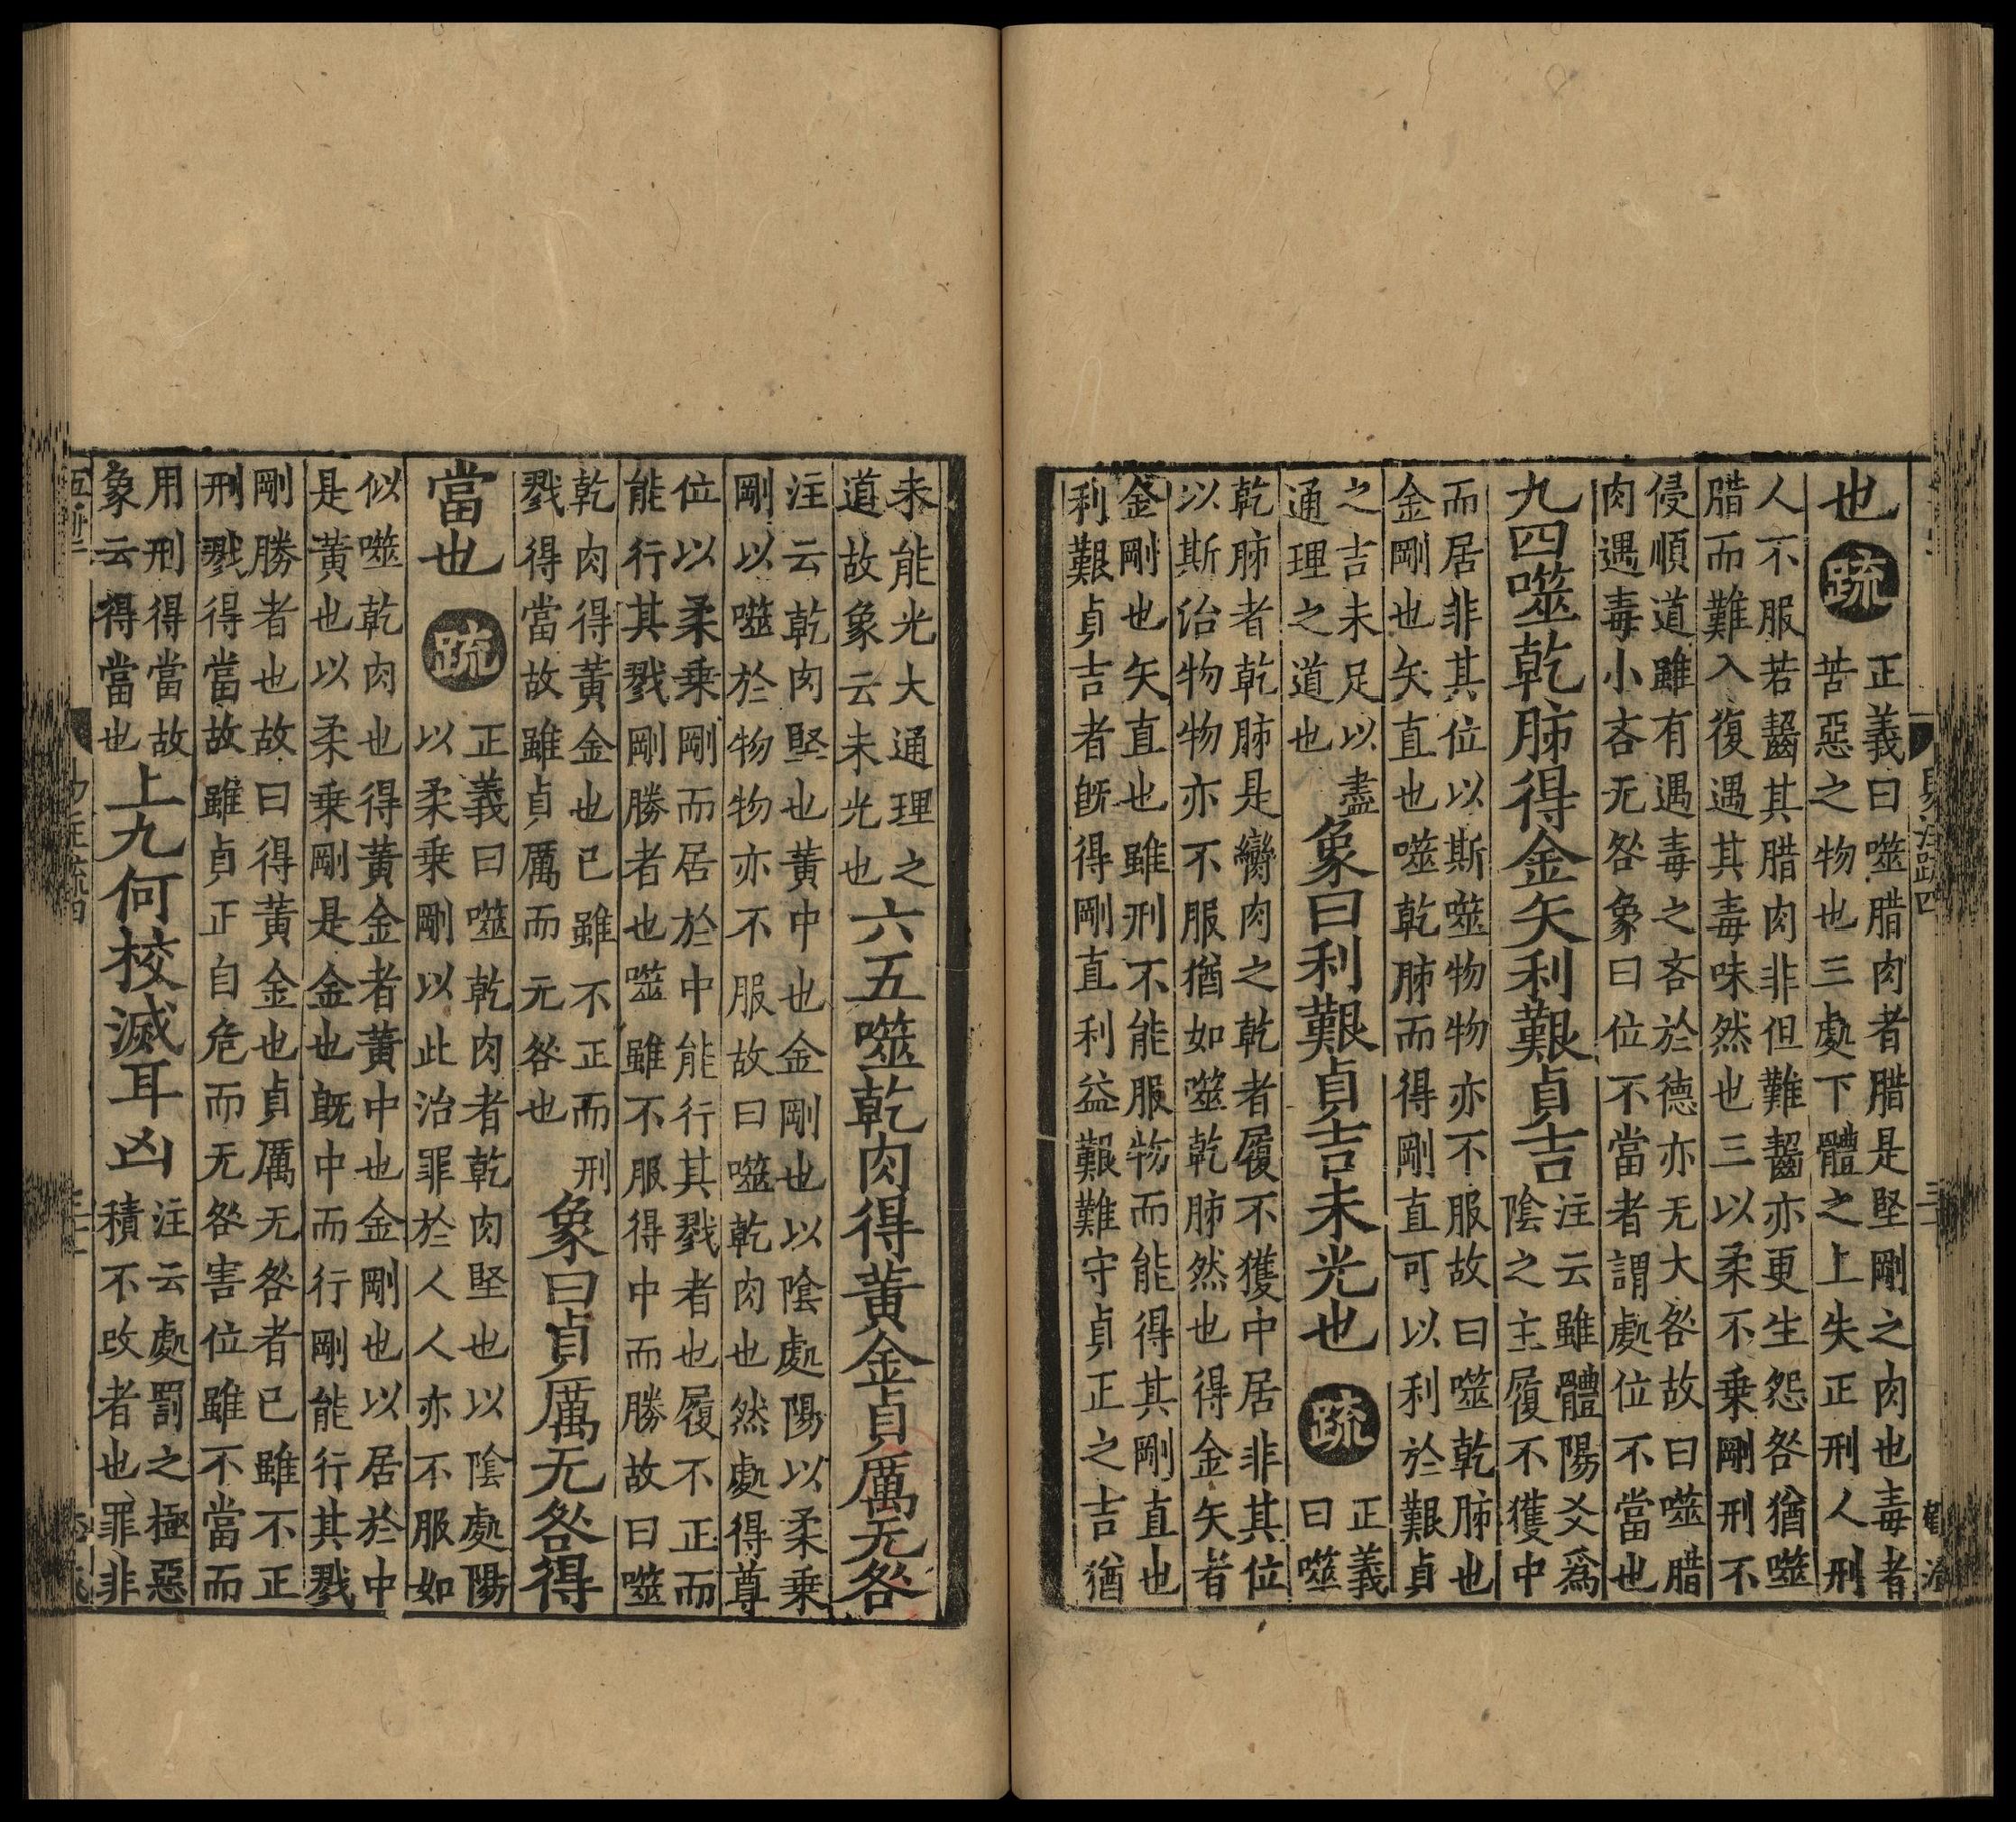 也疏正義曰噬腊肉者腊是堅剛之肉也毒者
苦惡之物也三處下體之上失正刑人刑
人不服若齧其腊肉非但難齧亦更生怨咎猶噬
腊而難入復遇其毒味然也三以柔不乗剛刑不
侵順道雖有遇毒之吝於德亦无大咎故曰噬腊
肉遇毒小吝无咎象曰位不當者謂處位不當也
九四噬乾胏得金矢利艱貞吉注云雖體陽爻爲
陰之主履不獲中
而居非其位以斯噬物物亦不服故曰噬乾胏也
金剛也矢直也噬乾胏而得剛直可以利於艱貞
之吉未足以盡
通理之道也
象曰利艱貞吉未光也疏正義
曰噬
乾胏者乾胏是臠肉之乾者履不獲中居非其位
以斯治物物亦不服猶如噬乾胏然也得金矢者
金剛也矢直也雖刑不能服物而能得其剛直也
利艱貞吉者旣得剛直利益艱難守貞正之吉猶
未能光大通理之
道故象云未光也
六五噬乾肉得黃金貞厲无咎
注云乾肉堅也黃中也金剛也以陰處陽以柔乗
剛以噬於物物亦不服故曰噬乾肉也然處得尊
位以柔乗剛而居於中能行其戮者也履不正而
能行其戮剛勝者也噬雖不服得中而勝故曰噬
乾肉得黃金也已雖不正而刑
戮得當故雖貞厲而无咎也
象曰貞厲无咎得
當也疏正義曰噬乾肉者乾肉堅也以陰處陽
以柔乗剛以此治罪於人人亦不服如
似噬乾肉也得黃金者黃中也金剛也以居於中
是黃也以柔乗剛是金也旣中而行剛能行其戮
剛勝者也故曰得黃金也貞厲无咎者已雖不正
刑戮得當故雖貞正自危而无咎害位雖不當而
用刑得當故
象云得當也
上九何校滅耳凶注云處罰之極惡
積不改者也罪非